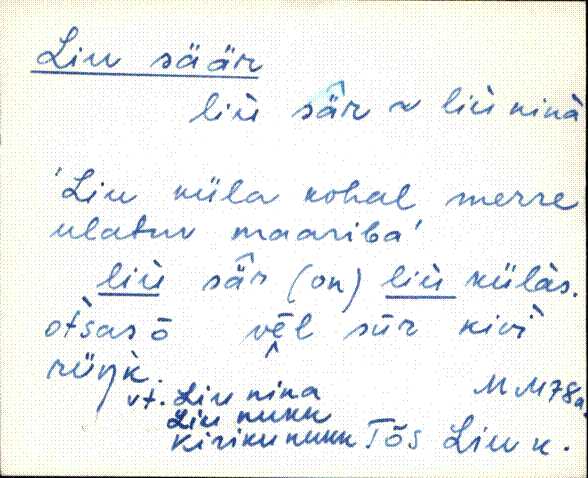 Liu säär
liù sä̂r ~ liù ninà
'Liu küla kohal merre
ulatuv maariba'
liù sä̂r (on) liù külàs.
otsas ō vēl sūr kivì
rüŋk.
vt. Liu nina
Liu nukk
Kirikunukk
MM78a
Tõs Liu k.